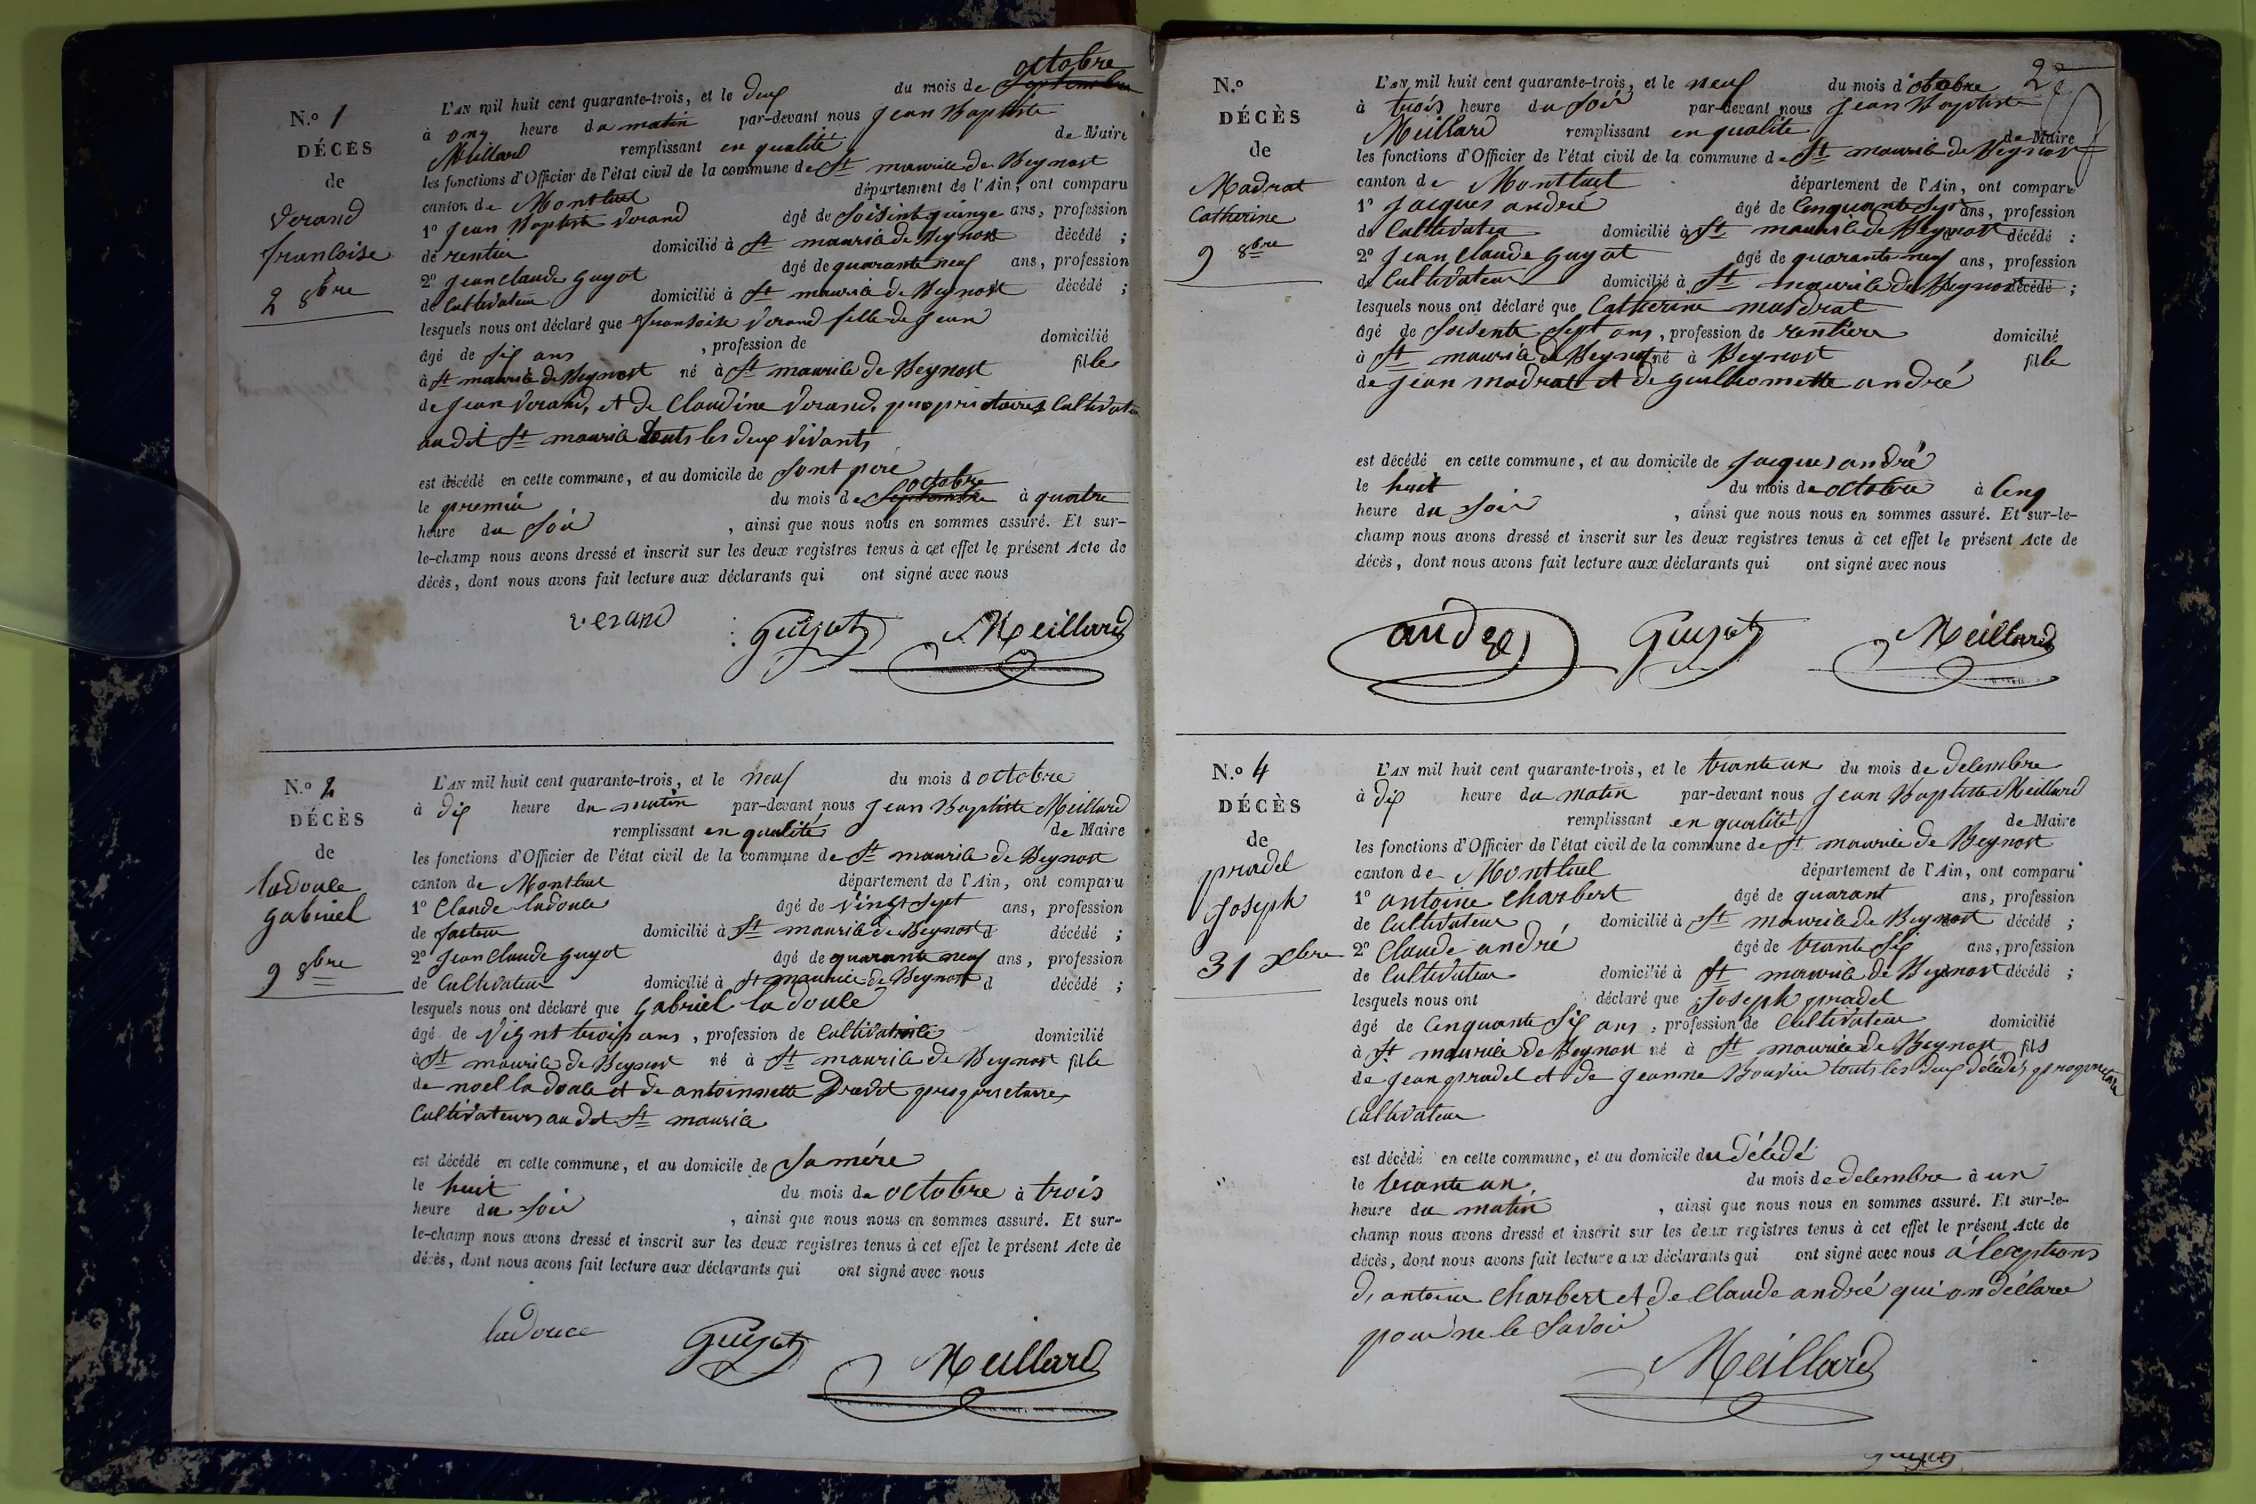 N.º 1
DÉCÈS
de
Verand
francoise
2 8bre
L'AN mil huit cent quarante-trois, et le deux du mois de septembre octobre
à onz heure du matin par-devant nous Jean Baptiste
Meillard remplissant en qualité de Maire
les fonctions d'Officier de l'état civil de la commune de St maurice de Beynost
canton de Montluel département de l'Ain, ont comparu
1º Jean Baptiste Verand âgé de soisente quinze ans, profession
de rentier domicilié à St maurice de Beynost décédé ;
2º Jean claude guyot âgé de quarante neuf ans, profession
de Cultivateur domicilié à St maurice de Beynost décédé ;
lesquels nous ont déclaré que fransoise Verand fille de Jean
âgé de six ans , profession de domicilié
à St maurice de Beynost né à St maurice de Beynost fille
de Jean Verand, et de Claudine Verand, proprietaires Cultivateur
au dit St maurice touts les deux vivants
est décédé en cette commune, et au domicile de sont pere
le premier du mois de septembre octobre à quatre
heure du soir , ainsi que nous nous en sommes assuré. Et sur-
le-champ nous avons dressé et inscrit sur les deux registres tenus à cet effet le présent Acte de
décès, dont nous avons fait lecture aux déclarants qui ont signé avec nous
verand Guyot Meillard
N.º 2
DÉCÈS
de
ladouce
gabriel
9 8bre
L'AN mil huit cent quarante-trois, et le neuf du mois d octobre
à dix heure du matin par-devant nous Jean Baptiste Meillard
remplissant en qualité de Maire
les fonctions d'Officier de l'état civil de la commune de St maurice de Beynost
canton de Montluel département de l'Ain, ont comparu
1º Claude ladouce âgé de vingt sept ans, profession
de facteur domicilié à St maurice de Beynost d décédé ;
2º Jean claude guyot âgé de quarante neuf ans, profession
de Cultivateur domicilié à St maurice de Beynost d décédé ;
lesquels nous ont déclaré que gabriel la douce
âgé de vignt trois ans , profession de domicilié
à St maurice de Beynost né à St maurice de Beynost fils
de noel la douce et de antoinnette proprietaires
Cultivateurs au dit St maurice
est décédé en cette commune, et au domicile de sa mére
le huit du mois de octobre à trois
heure du soir , ainsi que nous nous en sommes assuré. Et sur-
le-champ nous avons dressé et inscrit sur les deux registres tenus à cet effet le présent Acte de
décès, dont nous avons fait lecture aux déclarants qui ont signé avec nous
ladouce Guyot Meillard
N.º
DÉCÈS
de
Madrat
Catherine
9 8bre
L'AN mil huit cent quarante-trois, et le neuf du mois d'octobre
à trois heure du soir par-devant nous Jean Baptiste
Meillard remplissant en qualité de Maire
les fonctions d'Officier de l'état civil de la commune de St maurice de Beynost
canton de Montluel département de l'Ain, ont comparu
1º Jacques andré âgé de Cinquante sept ans, profession
de Cultivateur domicilié à St maurice de Beynost décédé ;
2º Jean Claude guyot âgé de quarante neuf ans, profession
de Cultivateur domicilié à St maurice de Beynost décédé ;
lesquels nous ont déclaré que Catherine madrat
âgé de soisente sept ans , profession de rentiere domicilié
à St maurice de Beynost né à Beynost fille
de Jean madrat et de guilhomette andré
est décédé en cette commune, et au domicile de Jacques andré
le huit du mois de octobre à Cinq
heure du soir , ainsi que nous nous en sommes assuré. Et sur-le-
champ nous avons dressé et inscrit sur les deux registres tenus à cet effet le présent Acte de
décès, dont nous avons fait lecture aux déclarants qui ont signé avec nous
andre Guyot Meillard
N.º 4
DÉCÈS
de
pradel
Joseph
31 Xbre
L'AN mil huit cent quarante-trois, et le trante un du mois de decembre
à dix heure du matin par-devant nous Jean Baptiste Meillard
remplissant en qualité de Maire
les fonctions d'Officier de l'état civil de la commune de St maurice de Beynost
canton de Montluel département de l'Ain, ont comparu
1º antoine Charbert âgé de quarant ans, profession
de Cultivateur domicilié à St maurice de Beynost décédé ;
2º Claude andré âgé de trante six ans, profession
de Cultivateur domicilié à St maurice de Beynost décédé ;
lesquels nous ont déclaré que Joseph pradel
âgé de Cinquante six ans , profession de Cultivateur domicilié
à St maurice de Beynost né à St maurice de Beynost fils
de Jean pradel et de Jeanne Bouvier touts les deux décédés
Cultivateur
est décédé en cette commune, et au domicile du décédé
le trante un du mois de decembre à un
heure du matin , ainsi que nous nous en sommes assuré. Et sur-le-
champ nous avons dressé et inscrit sur les deux registres tenus à cet effet le présent Acte de
décès, dont nous avons fait lecture aux déclarants qui ont signé avec nous à l'exeptions
d, antoine Charbert et de Claude andré qui on déclaré
pour ne le savoir
Meillard